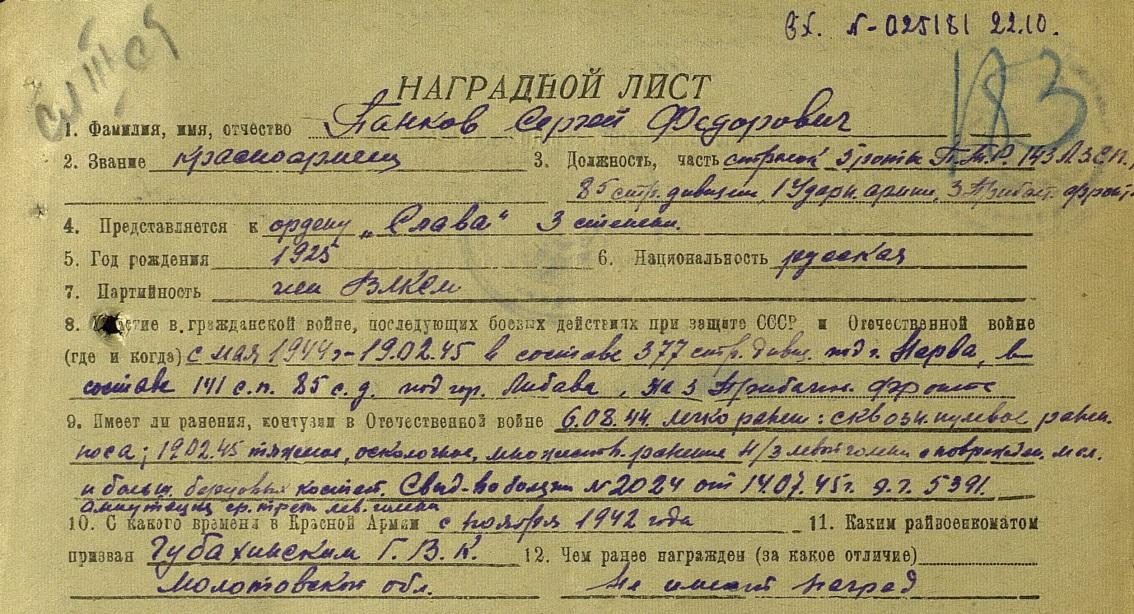 вх. N-025181 22.10.
183
НАГРАДНОЙ ЛИСТ
1. Фамилия, имя, отчество Панков Сергей Федорович
2. Звание красноармеец 3. Должность, часть стрелок 5 роты
85 стр. дивизии, 1 Ударн. армии, 3 Прибалт. фронт
4. Представляется к ордену „Слава" 3 степени.
5. Год рождения 1925 6. Национальность русский
7. Партийность член ВЛКСМ
8. Участие в гражданской войне, последующих боевых действиях при защите СССР и Отечественной войне
(где и когда) с мая 1944 г - 19.02.45 в составе 377 стр. дивиз. под г. Нарва, в
составе 141 с.п. 85 с.д. под гор. Либава, на 3 Прибалт. фронте
9. Имеет ли ранения, контузии в Отечественной войне 6.08.44. легко ранен: сквозн. пулевое ранен.
носа; 19.02.45 тяжелое, осколочное, множеств. ранение н/3 левой голени с поврежден. мал.
и больш. берцовых костей. Свид-во болезни N 2024 от 14.07.45 г. э.г. 5391.
ампутация ср. трет. лев. голени
10. С какого времени в Красной Армии с ноября 1942 года 11. Каким райвоенкоматом
призван Губахинским Г.В.К. 12. Чем ранее награжден (за какое отличие)
Молотовской обл. не имеет наград